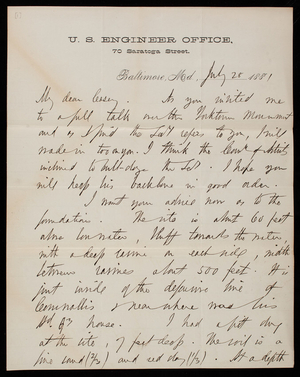 U. S. ENGINEER OFFICE,
70 Saratoga Street.
Baltimore, Md. July 20 1881
My dear Casey. As you invited me
to a full talk over the Yorktown Monument
and as I find the Sec'y refers to you, I will
wade in too soon. I think the Com'n of Artists
inclined to bull-doze the Sec. I hope you
will keep his backbone in good order.
I want your advice now as to the
foundation. The site is about 60 feet
above low water, bluff towards the water,
with a deep ravine on each side, width
between ravines about 500 feet. It is
just inside of the defensive line of
Cornwallis & near where was his
Hd. Qr. house. I had a pit dug
at the site, 7 feet deep. The soil is a
fine sand (2/3) and red clay (1/3). At a depth